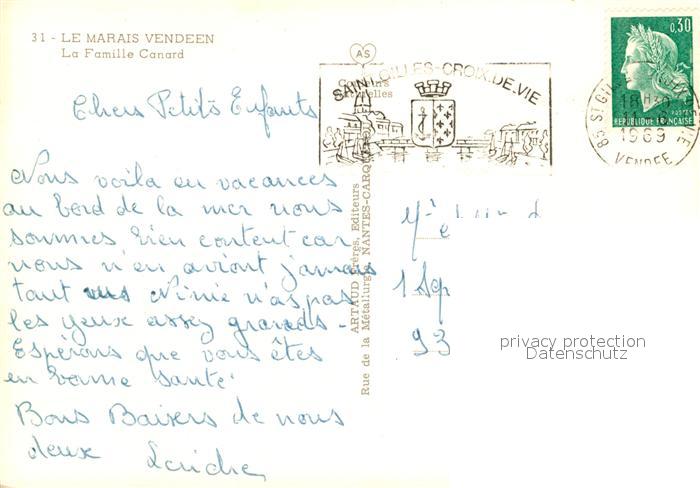 31 - LE MARAIS VENDEEN
La Famille Canard
AS
SAINT.GILLES-CROIX.DE.VIE
0,30
REPUBLIQUE FRANÇAISE
18H
1969
VENDEE
Chers Petits Enfants
Nous voila en vacances
au bord de la mer nous
sommes bien content car
nous n'en aviont jamais
tant vus Ninie n'as pas
les yeux assez grands -
Espérons que vous êtes
en bonne santé
Bons Baisers de nous
deux
ARTAUD Frères, Editeurs
Rue de la Métallurgie NANTES-CARQ
93
privacy protection
Datenschutz